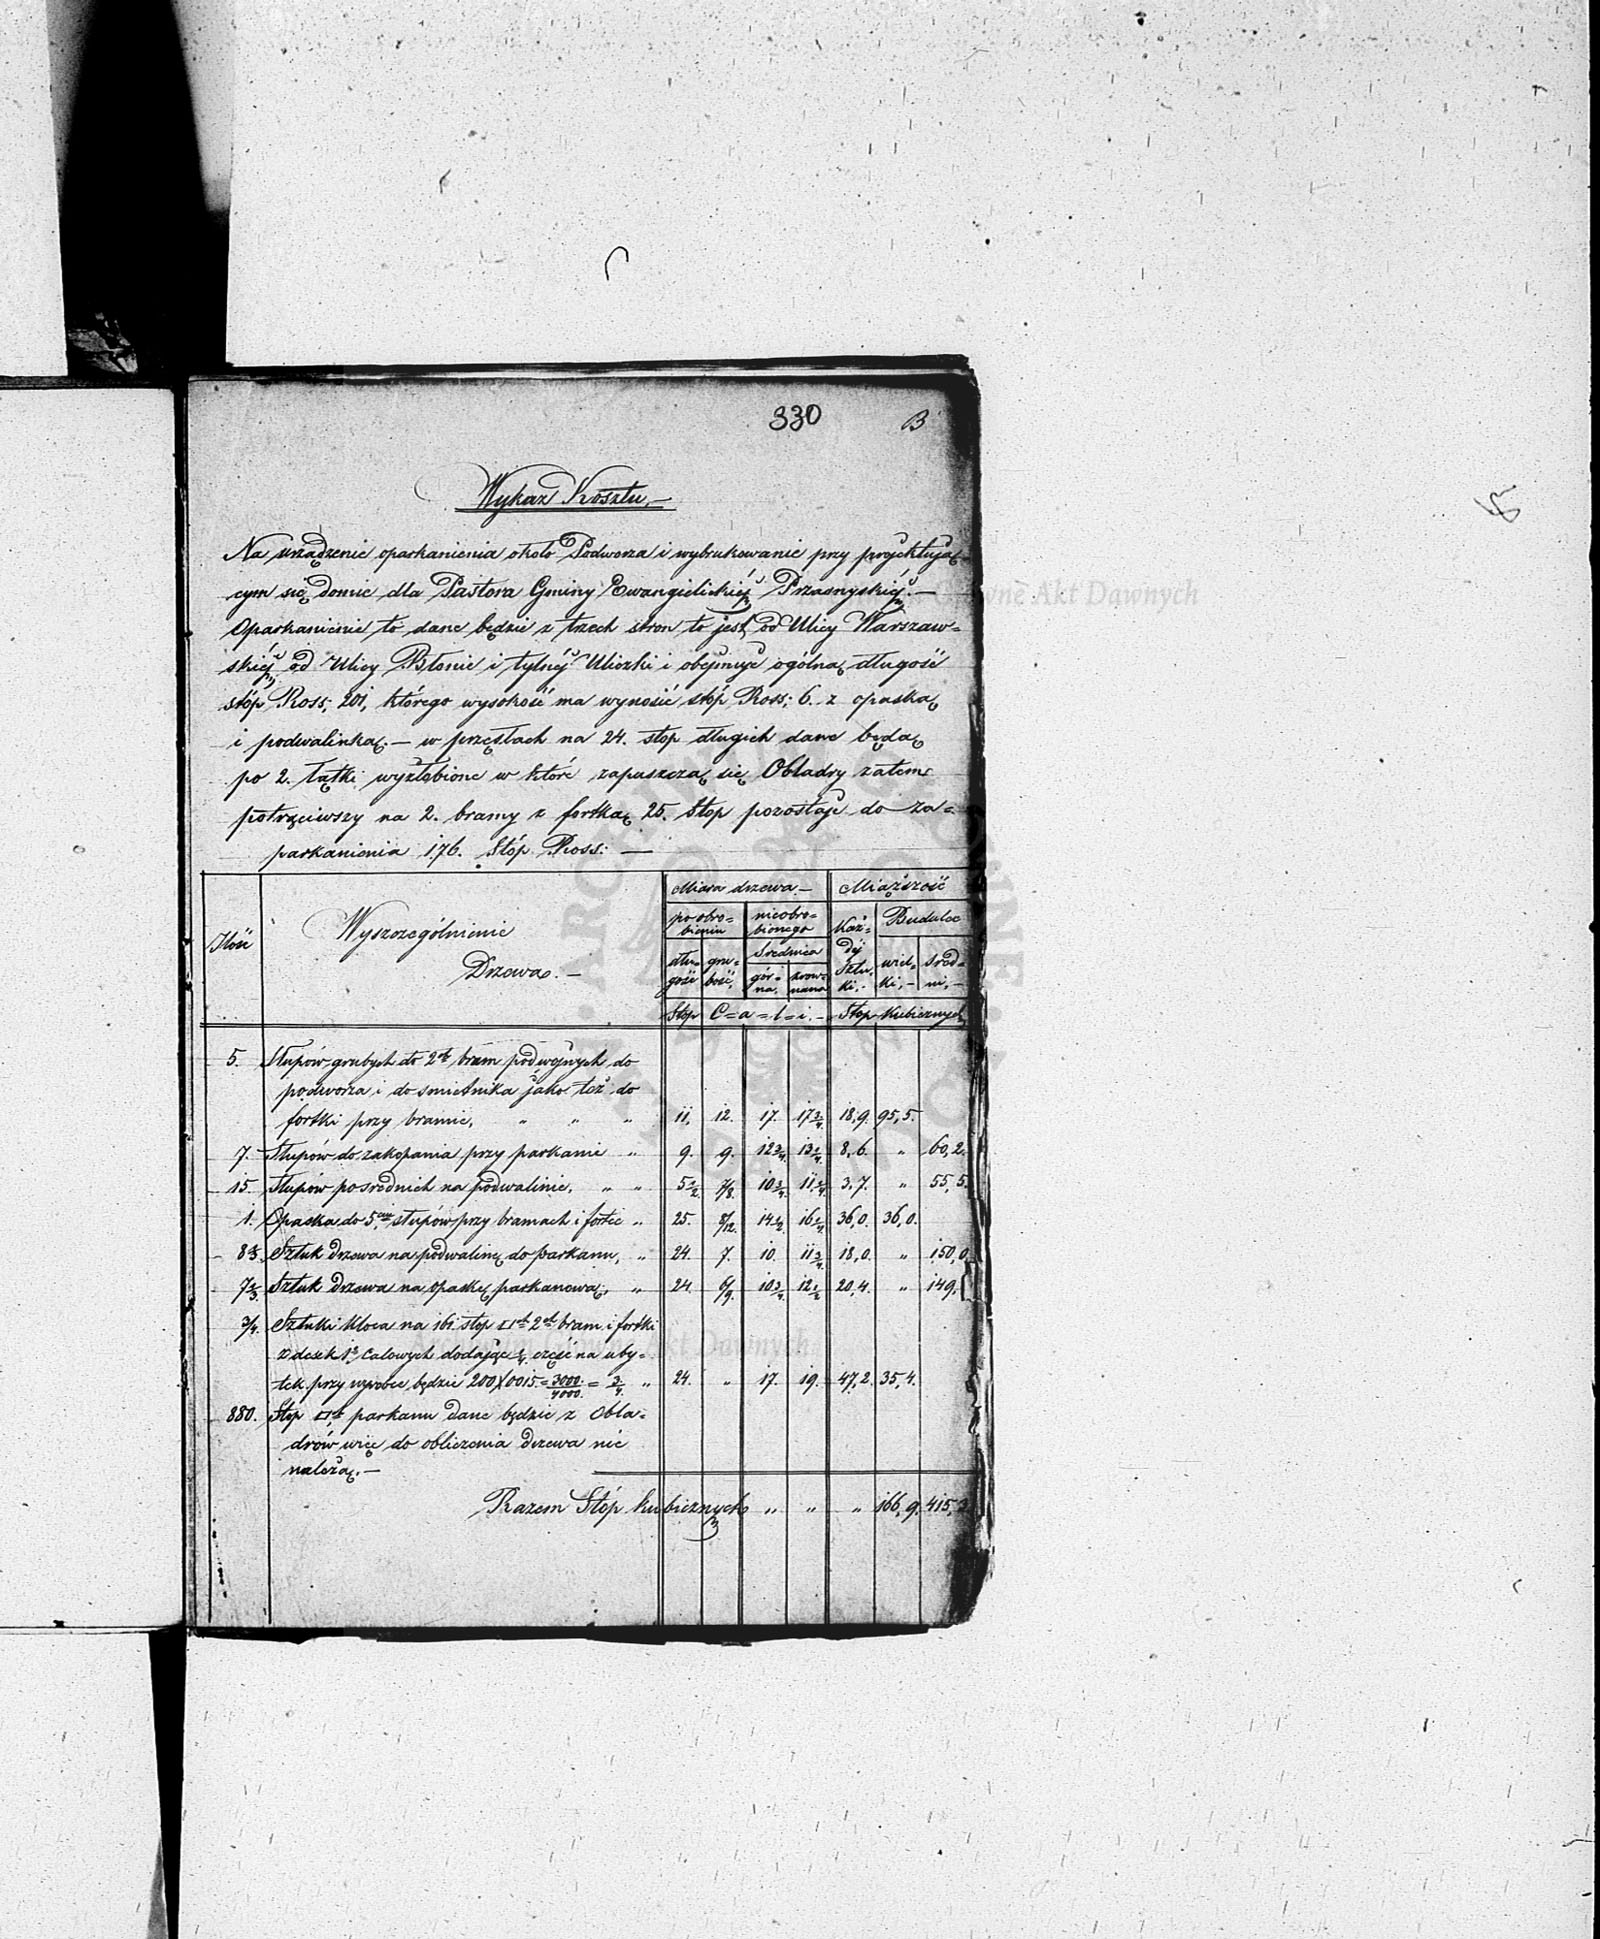 330
B
Wykaz Kosztu.—
Na urządzenie oparkanienia około Podworza i wybrukowanie przy projektują=
cym się domie dla Pastora Gminy Ewangielickiéj Przasnyskiéj.—
Oparkanienie to dane będzie z trzech stron to jest, od Ulicy Warszaw=
skiéj od Ulicy Błonie i tylnéj Uliczki i obejmuje ogólną długość
stóp Ross; 201, którego wysokość ma wynosić stóp Ross; 6. z opaską
i podwalinką.— w przęsłach na 24. stop długich dane będą
po 2. łątki wyżłobione w które zapuszczą się Obladry zatem
potrąciwszy na 2. bramy z fortką 25. Stop pozostaje do za=
parkanienia 176. Stóp Ross: —
Ilość
Wyszczególnienie
Drzewa.—
Miara drzewa.—
po obro=
bieniu
nieobro=
bionego
dłu=
gość
gru=
bość,
Srednica
gór=
na,
zrów=
nana
Stop
C=a=l=i.—
Miąższość
Każ=
déj
Sztu=
ki,-
Budulec
wiel=
ki,-
śred=
ni,-
Stop Kubicznych
5. Słupów grubych do 2ch bram podwójnych do
podworza i do smietnika jako też do
fortki przy bramie, " " " 11, 12. 17. 17 3/4. 18,9. 95,5.
7. Słupów do zakopania przy parkanie " 9. 9. 12 3/4. 13 3/4. 8,6. " 60,2.
15. Słupów posrednich na podwalinie, " " 5 1/2. 7/8. 10 3/4. 11 1/4. 3,7. " 55,5.
1. Opaska do 5,ciu słupów przy bramach i fortce " 25. 8/12. 14 1/2. 16 1/4. 36,0. 36,0.
8 1/3. Sztuk drzewa na podwalinę do parkanu, " 24. 7. 10. 11 3/4. 18,0. " 150,0
7 1/3. Sztuk drzewa na opaskę parkanową, " 24. 6/9. 10 3/4. 12 1/2 20,4. " 149,
3/4. Sztuki Kloca na 161 stop □ch 2ch bram i fortki
z desek 1 1/2 calowych dodając 1/4 część na uby-
tek przy wyrobce, będzie 200 X 0015 = 3000/4000. = 3/4. " 24. " 17. 19. 47,2. 35,4.
880. Stop □ch parkanu dane będzie z Obla=
drów więc do obliczenia drzewa nie
należą.—
Razem Stóp kubicznych " " " 166,9. 415,